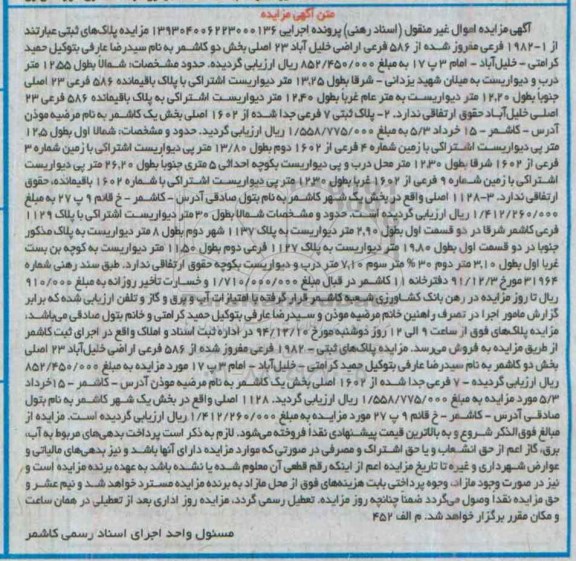 متن آگهی مزایده
آگهی مزایده اموال غیر منقول (اسناد رهنی) پرونده اجرایی ۱۳۹۳۰۴۰۰۶۲۲۳۰۰۰۱۳۶ مزایده پلاک‌های ثبتی عبارتند
از ۱-۱۹۸۲ فرعی مفروز شده از ۵۸۶ فرعی اراضی خلیل آباد ۲۳ اصلی بخش دو کاشمر به نام سیدرضا عارفی بتوکیل حمید
کرامتی - خلیل‌آباد - امام ۳ پ ۱۷ به مبلغ ۸۵۲/۴۵۰/۰۰۰ ریال ارزیابی گردیده. حدود مشخصات: شمالاً بطول ۱۲۵۵ متر
درب و دیواریست به میلان شهید یزدانی - شرقا بطول ۱۳،۲۵ متر دیواریست اشتراکی با پلاک باقیمانده ۵۸۶ فرعی ۲۳ اصلی
جنوباً بطول ۱۲،۲۰ متر دیواریست به متر عام غرباً بطول ۱۲،۴۰ متر دیواریست اشتراکی به پلاک باقیمانده ۵۸۶ فرعی ۲۳
اصلی خلیل‌آباد حقوق ارتفاقی ندارد. ۲- پلاک ثبتی ۷ فرعی جدا شده از ۱۶۰۲ اصلی بخش یک کاشمر به نام مرضیه موذن
آدرس - کاشمر - ۱۵ خرداد ۵/۳ به مبلغ ۱/۵۵۸/۷۷۵/۰۰۰ ریال ارزیابی گردید. حدود و مشخصات: شمالا اول بطول ۱۲،۵
متر پی دیواریست اشتراکی با زمین شماره ۴ فرعی از ۱۶۰۲ دوم بطول ۱۳/۸۰ متر پی دیواریست اشتراکی با زمین شماره ۳
فرعی از ۱۶۰۲ شرقا بطول ۱۲،۳۰ متر محل درب و پی دیواریست بکوچه احداثی ۵ متری جنوبا بطول ۲۶،۲۰ متر پی دیواریست
اشتراکی با زمین شماره ۹ فرعی از ۱۶۰۲ غربا بطول ۱۲،۳۰ متر پی دیواریست اشتراکی با شماره ۱۶۰۲ باقیمانده، حقوق
ارتفاقی ندارد. ۳-۱۱۲۸ اصلی واقع در بخش یک شهر کاشمر به نام بتول صادقی آدرس - کاشمر - خ قائم ۹ پ ۲۷ به مبلغ
۱/۴۱۲/۲۶۰/۰۰۰ ریال ارزیابی گردیده است. حدود و مشخصات شمالاً بطول ۳۰ متر دیواریست اشتراکی با پلاک ۱۱۲۹
فرعی کاشمر شرقا در دو قسمت اول بطول ۲،۹۰ متر دیواریست به پلاک ۱۱۳۷ شهر دوم بطول ۸ متر دیواریست به پلاک مذکور
جنوبا در دو قسمت اول بطول ۱۹،۸۰ متر دیواریست به پلاک ۱۱۲۷ فرعی دوم بطول ۱۱،۵۰ متر دیواریست به کوچه بن بست
غربا اول بطول ۳،۱۰ متر دوم ۳۰ % متر سوم ۷،۱۰ متر درب و دیواریست بکوچه حقوق ارتفاقی ندارد. طبق سند رهنی شماره
۳۱۹۶۴ مورخ ۹۱/۱۲/۳ دفترخانه ۱۱ کاشمر در قبال مبلغ ۱/۷۱۰/۰۰۰/۰۰۰ و خسارت تأخیر روزانه به مبلغ ۹۱۰/۰۰۰
ریال تا روز مزایده در رهن بانک کشاورزی شعبه کاشمر قرار گرفته با امتیازات آب و برق و گاز و تلفن ارزیابی شده که برابر
گزارش مامور اجرا در تصرف راهنین خانم مرضیه موذن و سیدرضا عارفی بتوکیل حمید کرامتی و خانم بتول صادقی می‌باشد،
مزایده پلاک‌های فوق از ساعت ۹ الی ۱۲ روز دوشنبه مورخ ۹۴/۱۲/۲۰ در اداره ثبت اسناد و املاک واقع در اجرای ثبت کاشمر
از طریق مزایده به فروش می‌رسد. مزایده پلاک‌های ثبتی - ۱۹۸۲ فرعی مفروز شده از ۵۸۶ فرعی اراضی خلیل‌آباد ۲۳ اصلی
بخش دو کاشمر به نام سیدرضا عارفی بتوکیل حمید کرامتی - خلیل‌آباد - امام ۳ پ ۱۷ مورد مزایده به مبلغ ۸۵۲/۴۵۰/۰۰۰
ریال ارزیابی گردیده - ۷ فرعی جدا شده از ۱۶۰۲ اصلی بخش یک کاشمر به نام مرضیه موذن آدرس - کاشمر - ۱۵ خرداد
۵/۳ مورد مزایده به مبلغ ۱/۵۵۸/۷۷۵/۰۰۰ ریال ارزیابی گردید. ۱۱۲۸ اصلی واقع در بخش یک شهر کاشمر به نام بتول
صادقی آدرس - کاشمر - خ قائم ۹ پ ۲۷ مورد مزایده به مبلغ ۱/۴۱۲/۲۶۰/۰۰۰ ریال ارزیابی گردیده است. مزایده از
مبالغ فوق‌الذکر شروع و به بالاترین قیمت پیشنهادی نقداً فروخته می‌شود. لازم به ذکر است پرداخت بدهی‌های مربوط به آب،
برق، گاز اعم از حق انشعاب و یا حق اشتراک و مصرفی در صورتی که موارد مزایده دارای آنها باشد و نیز بدهی‌های مالیاتی و
عوارض شهرداری و غیره تا تاریخ مزایده اعم از اینکه رقم قطعی آن معلوم شده یا نشده باشد به عهده برنده مزایده است و
نیز در صورت وجود مازاد، وجوه پرداختی بابت هزینه‌های فوق از محل مازاد به برنده مزایده مسترد خواهد شد و نیم عشر و
حق مزایده نقداً وصول می‌گردد ضمناً چنانچه روز مزایده، تعطیل رسمی گردد، مزایده روز اداری بعد از تعطیلی در همان ساعت
و مکان مقرر برگزار خواهد شد. م الف ۴۵۲
مسئول واحد اجرای اسناد رسمی کاشمر